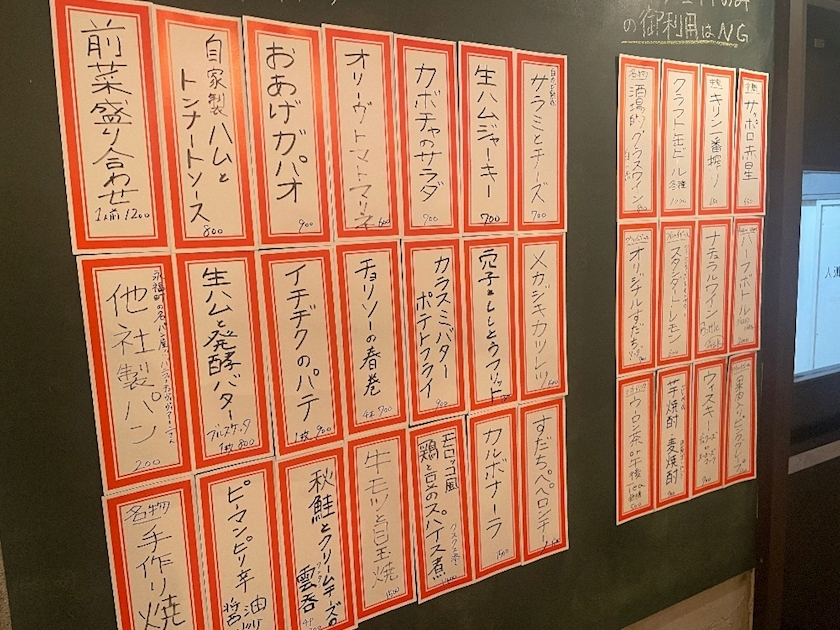 の御利用はNG
サラミとチーズ
700
生ハムジャーキー
700
カボチャのサラダ
900
オリーヴトマトマリネ
600
おあげガパオ
900
自家製ハムと
トンナートソース
800
前菜盛り合わせ
1人前 1200
メカジキカツレツ
穴子とししとうフリット
カラスミバター
ポテトフライ
900
チョリソーの春巻
4本 700
イチヂクのパテ
1枚 900
生ハムと発酵バター
ブルスケッタ
1枚 800
他社製パン
200
すだちペペロンチーノ
カルボナーラ
モロッコ風
鶏と豆のスパイス煮
牛モツと白玉焼
秋鮭とクリームチーズの
雲呑
ピーマンピリ辛
醤油
名物
手作り焼
サッポロ赤星
キリン一番搾り
クラフト缶ビール
各種
名物
酒場的グラスワイン
ハーフボトル
ナチュラルワイン
スタンダードレモン
オリジナルすだち
ウィスキー
芋焼酎 麦焼酎
ウーロン茶or午後Tea